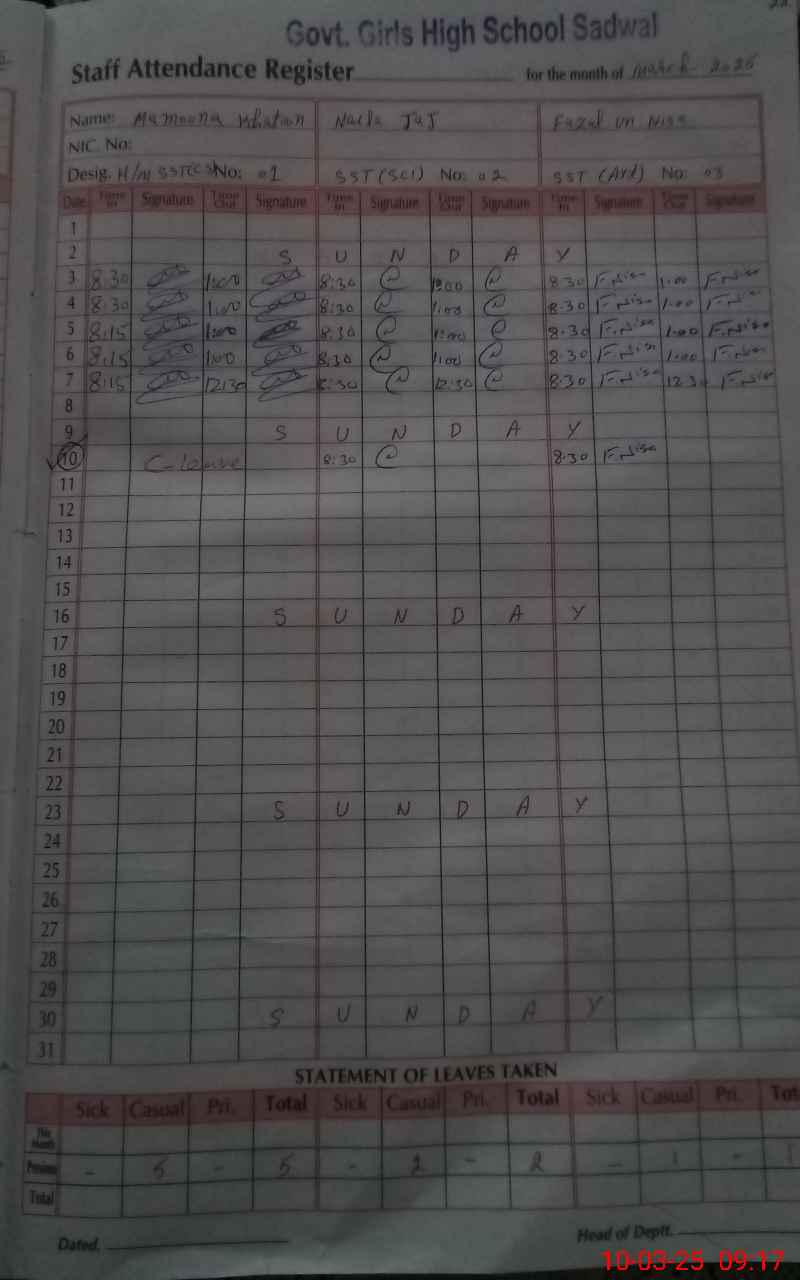 Govt. Girls High School Sadwal
Staff Attendance Register for the month of March 2025
Name: Mamoona Khatoon Naela JaJ Fazal un Nisa
NIC. No:
Desig. H/M SST(CS) No: 01 SST (SCI) No: 02 SST (Art) No: 03
Date Time In Signature Time Out Signature Time In Signature Time Out Signature Time In Signature Time Out Signature
1
2 S U N D A Y
3 8:30 1:00 8:30 1:00 8:30 F.Nisa 1.00 F.Nisa
4 8:30 1:00 8:30 1:00 8.30 F.Nisa 1.00 F.Nisa
5 8:15 1:00 8:30 1:00 8.30 F.Nisa 1.00 F.Nisa
6 8:15 1:00 8:30 1:00 8.30 F.Nisa 1.00 F.Nisa
7 8:15 12:30 8:30 12:30 8:30 F.Nisa 12 30 F.Nisa
8
9 S U N D A Y
10 C-leave 8:30 8.30 F.Nisa
11
12
13
14
15
16 S U N D A Y
17
18
19
20
21
22
23 S U N D A Y
24
25
26
27
28
29
30 S U N D A Y
31
STATEMENT OF LEAVES TAKEN
Sick Casual Pri. Total Sick Casual Pri. Total Sick Casual Pri. Tot
This Month
Previous - 5 - 5 - 2 - 2 - 1 - 1
Total
Dated. Head of Deptt.
10-03-25 09:17